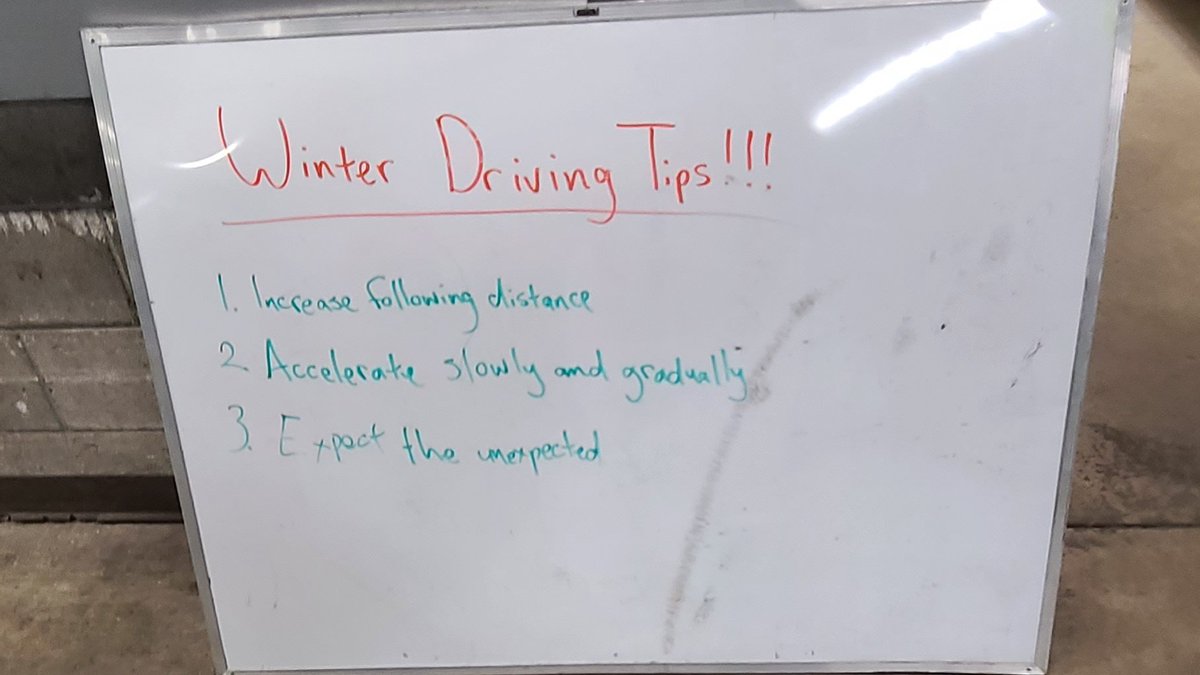 Winter Driving Tips!!!
1. Increase following distance
2. Accelerate slowly and gradually
3. Expect the unexpected